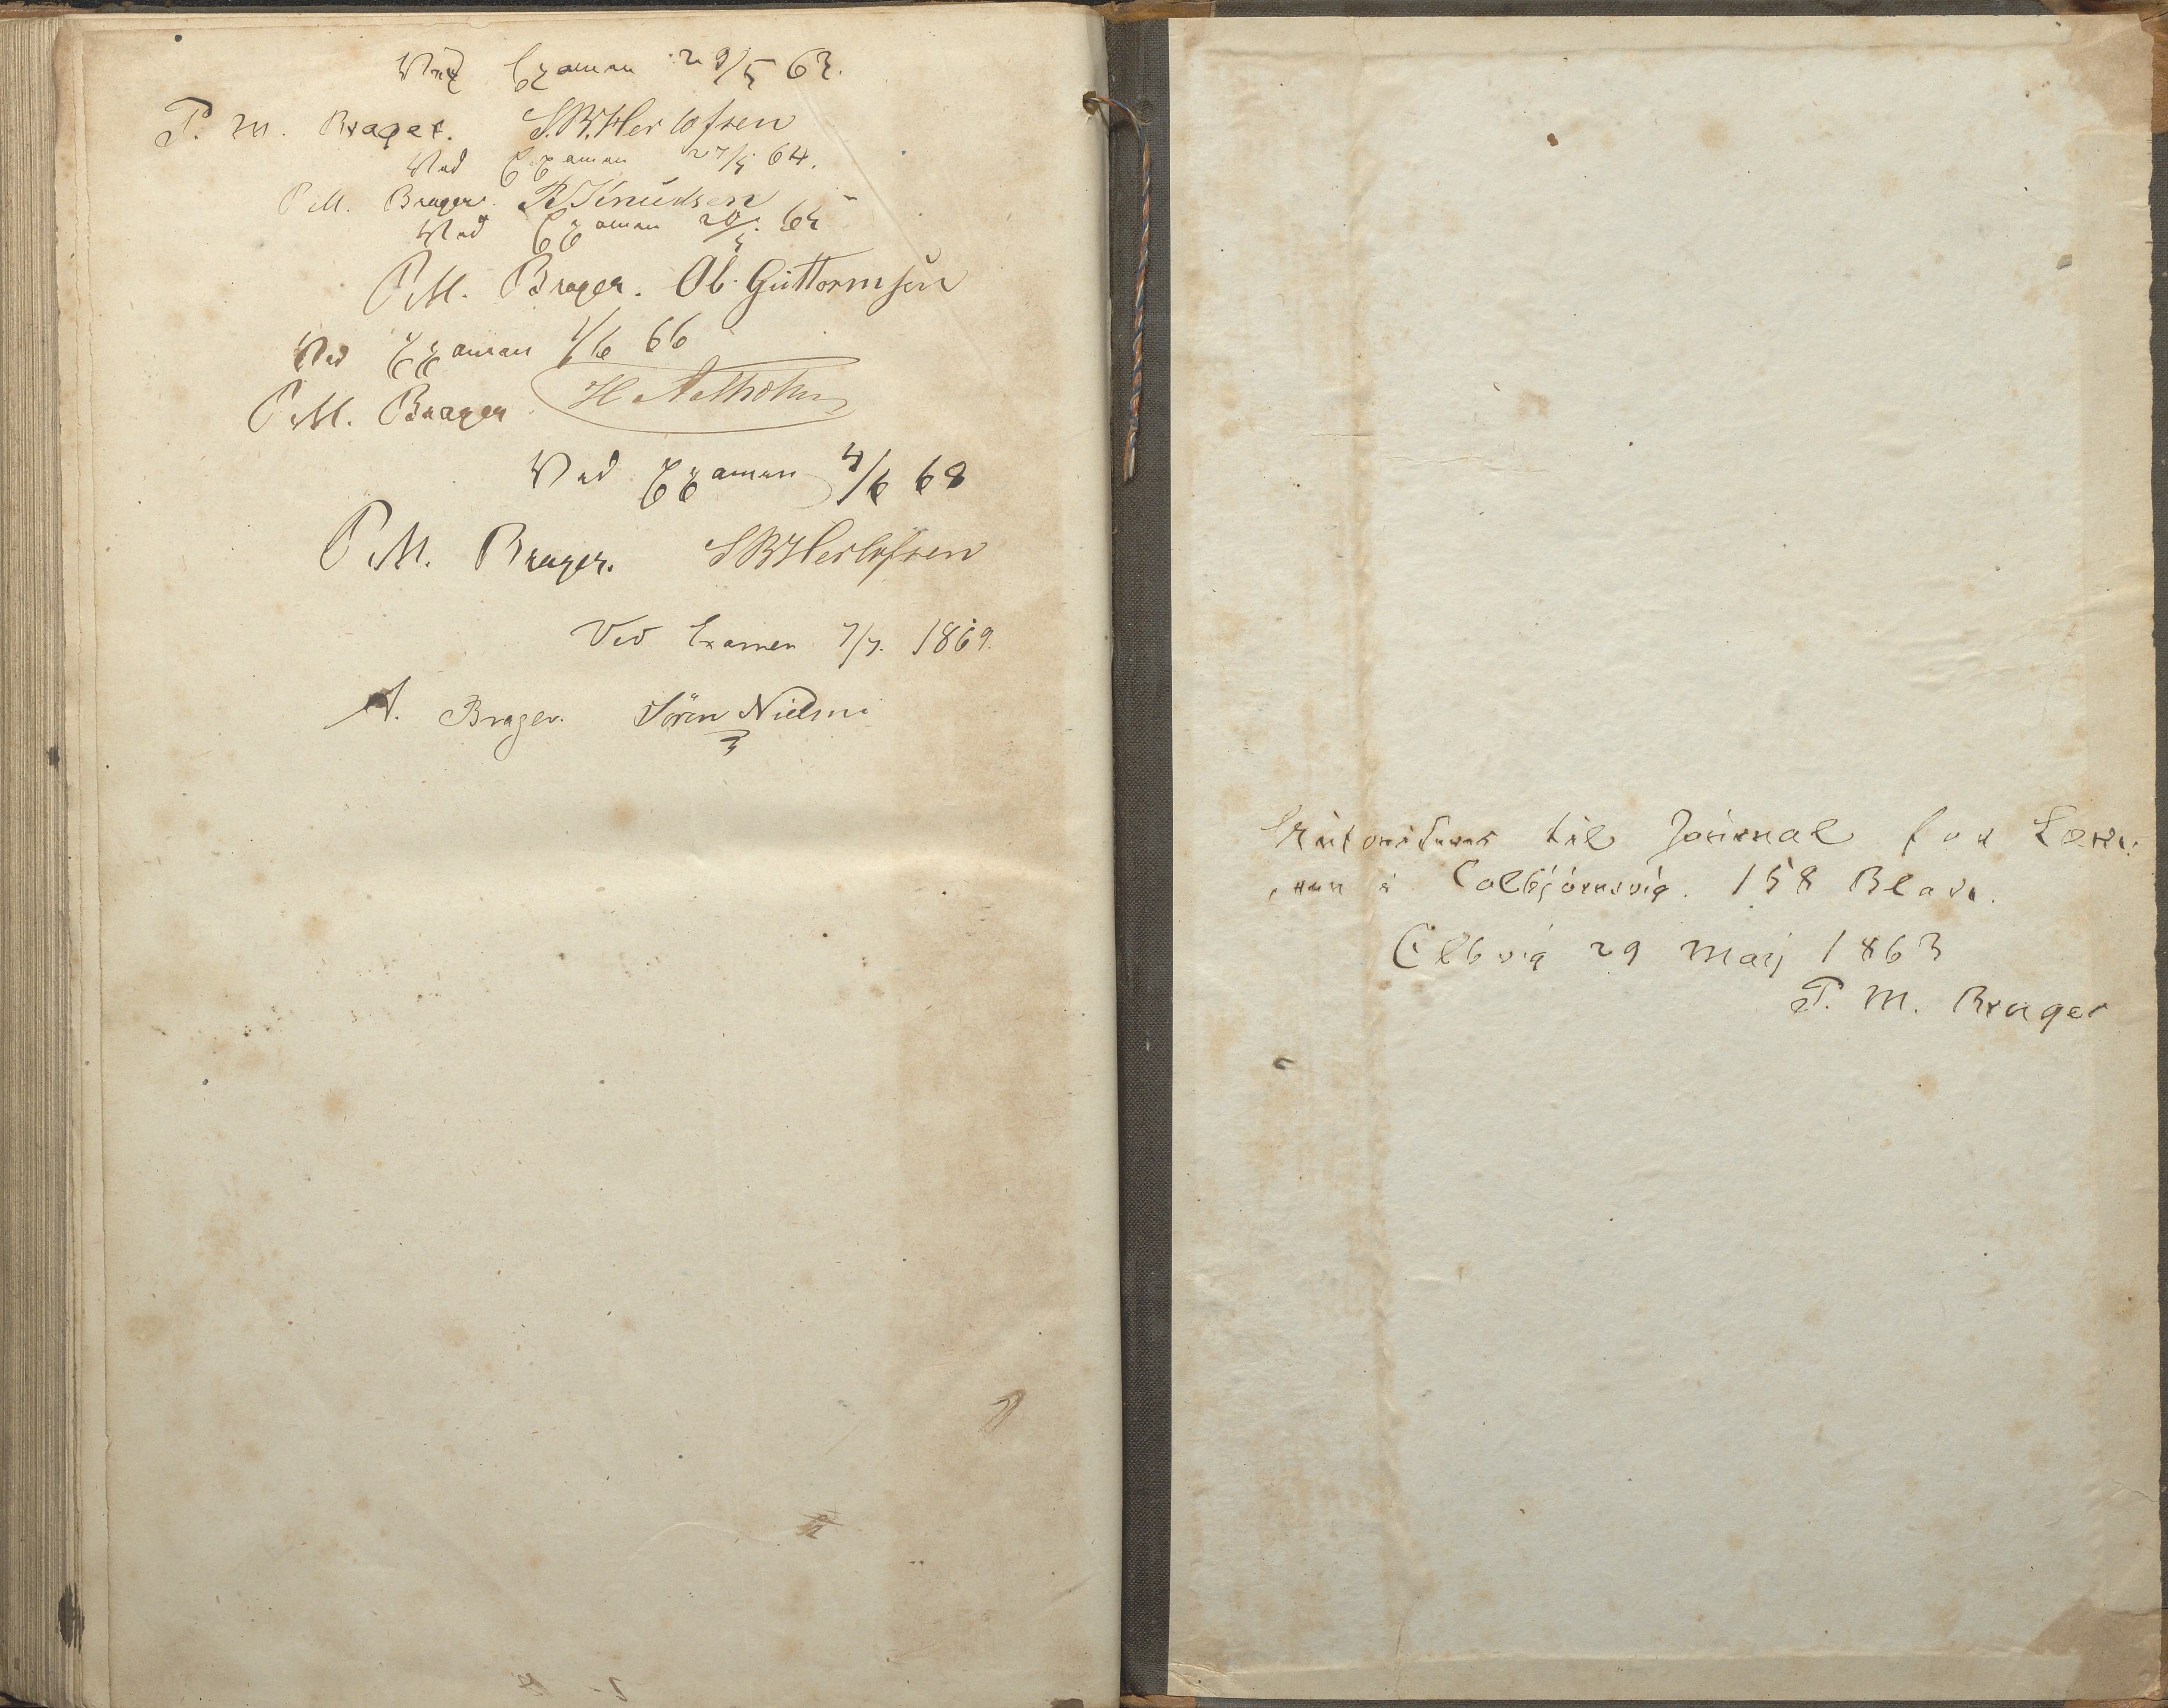 Ved Examen 29/5 63.
P. M. Brager. S. B. Herlofsen
Ved Examen 27/5 64.
P M. Brager. Knudsen
Ved Examen 20/5 65
P. M. Brager. Ol. Guttormsen
Ved Examen 1/6 66
P. M. Brager H
Ved Examen 4/6 68
P. M. Brager. S B Herlofsen
Ved Examen 7/7. 1869.
A. Brager. Sören Nielsen
til Journal for
i Colbjörnsvig. 158 Blade.
Clbvig 29 Maij 1863
P. M. Brager